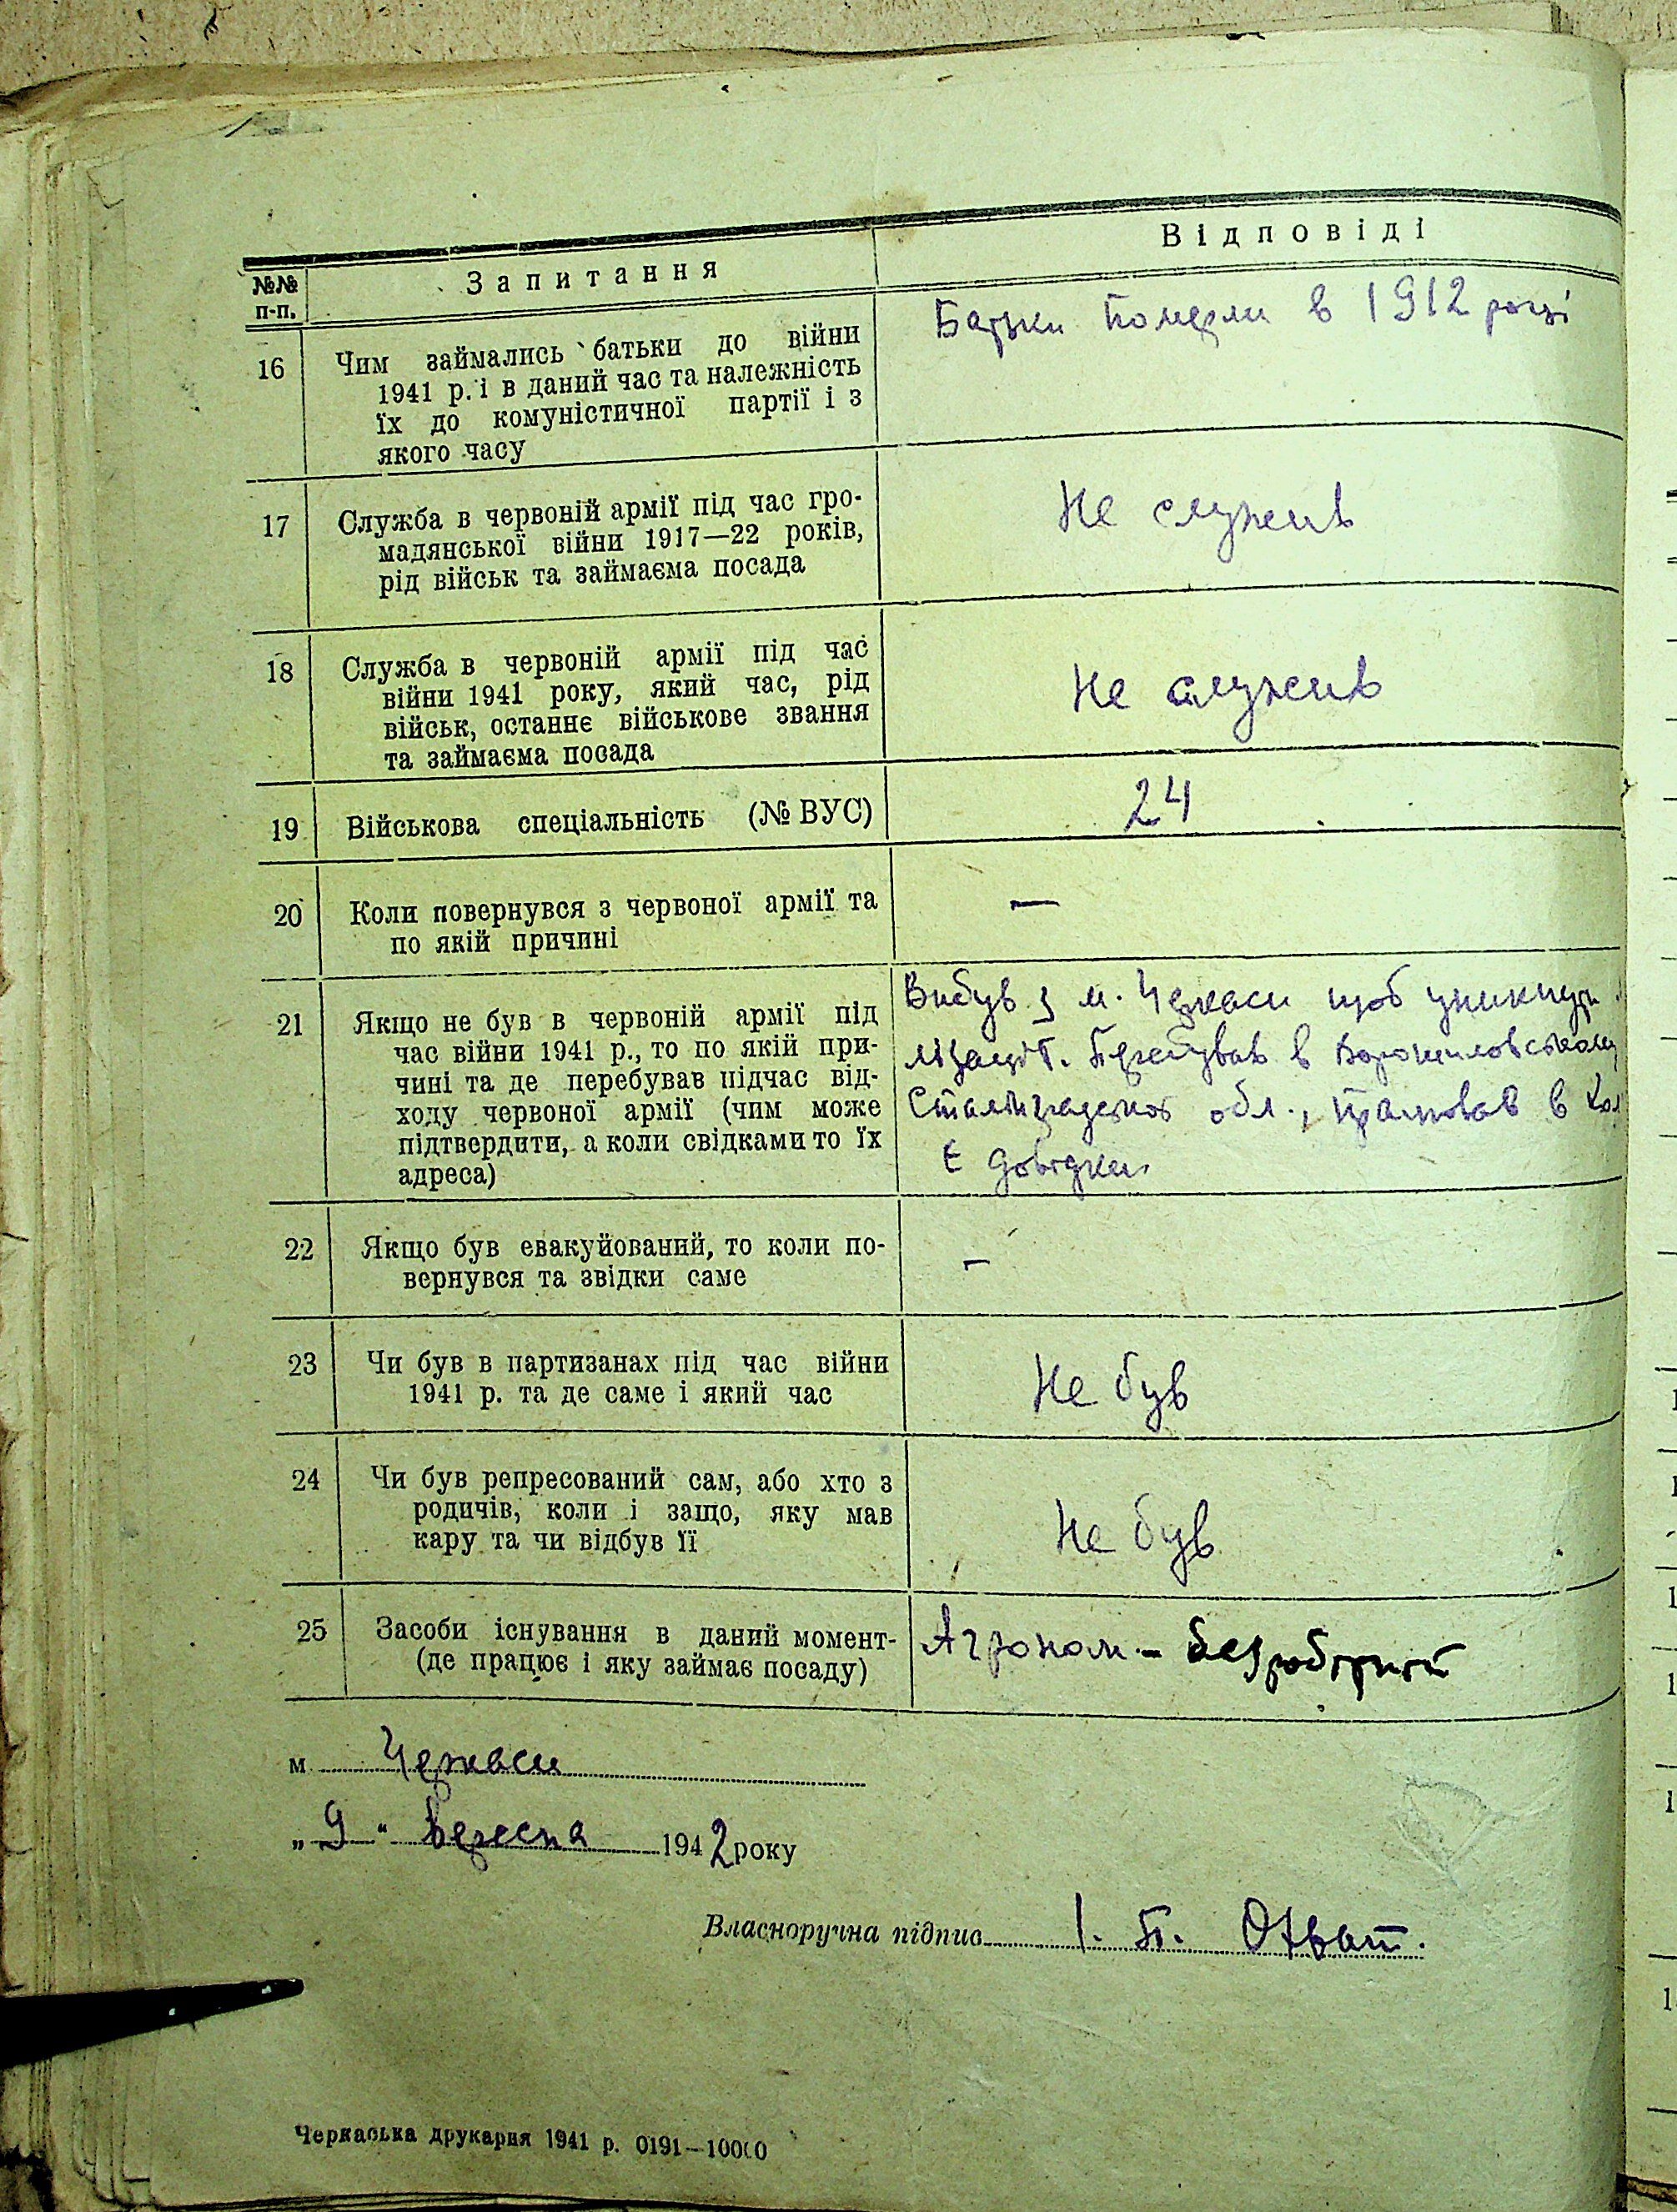 Відповіді
№№ п-п.
Запитання
16
Чим займались батьки до війни
1941 р. і в даний час та належність
їх до комуністичної партії і з
якого часу
Батьки померли в 1912 році
17
Служба в червоній армії під час гро-
мадянської війни 1917—22 років,
рід військ та займаєма посада
Не служив
18
Служба в червоній армії під час
війни 1941 року, який час, рід
військ, останнє військове звання
та займаєма посада
Не служив
19
Військова спеціальність (№ ВУС)
24
20
Коли повернувся з червоної армії та
по якій причині
—
21
Якщо не був в червоній армії під
час війни 1941 р., то по якій при-
чині та де перебував підчас від-
ходу червоної армії (чим може
підтвердити, а коли свідками то їх
адреса)
Вибув з м. Черкаси щоб уникнути
лізації. Перебував в Ворошиловському
Сталінградської обл., працював в Кол
Є довідки.
22
Якщо був евакуйований, то коли по-
вернувся та звідки саме
—
23
Чи був в партизанах під час війни
1941 р. та де саме і який час
Не був
24
Чи був репресований сам, або хто з
родичів, коли і защо, яку мав
кару та чи відбув її
Не був
25
Засоби існування в даний момент-
(де працює і яку займає посаду)
Агроном - безробітний
м. Черкаси
„ 9 " вересня 1942 року
Власноручна підпис І. П. Охват.
Черкаська друкарня 1941 р. 0191—10000